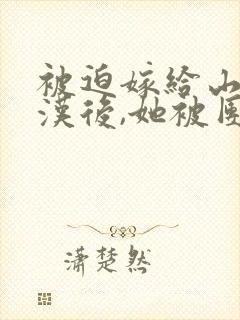 被迫嫁給山
漢後,她被
瀟楚然